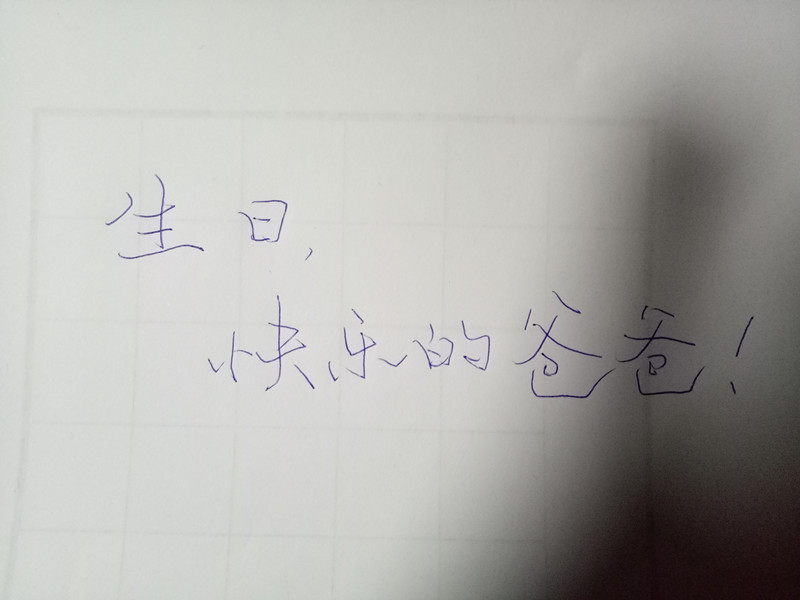 生日,
快乐的爸爸!